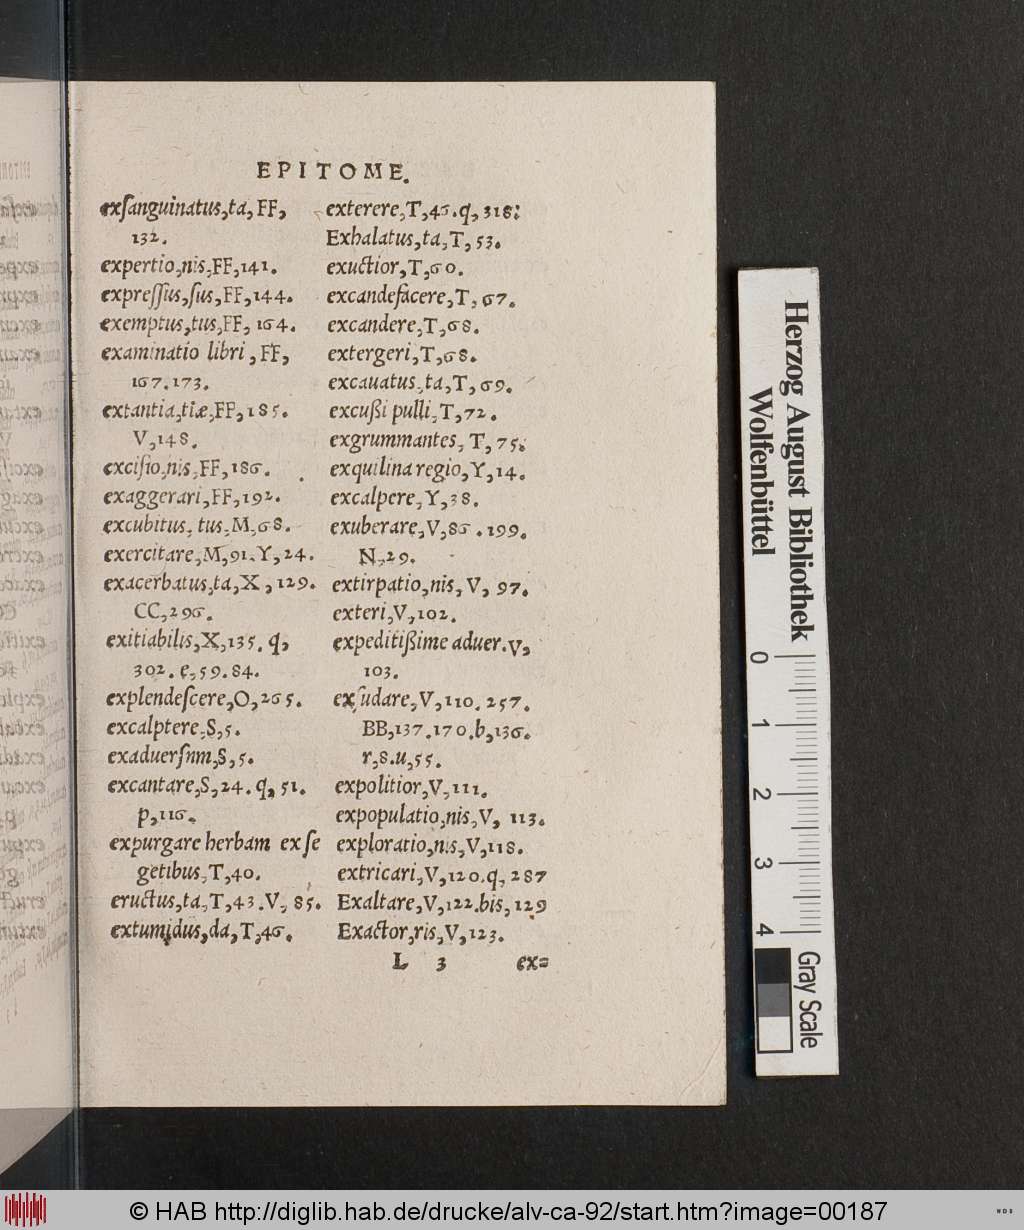 EPITOME.
exſanguinatus,ta, FF,
132.
expertio,nis,FF,141.
expreſſus,ſus,FF,144.
exemptus,tus,FF,164.
examinatio libri, FF,
167.173.
extantia,tiæ,FF,185.
V,148.
exciſio,nis,FF,186.
exaggerari,FF,192.
excubitus, tus,M,68.
exercitare,M,91.Y,24.
exacerbatus,ta,X,129.
CC,296.
exitiabilis,X,135. q,
302. e,59.84.
explendeſcere,O,265.
excalptere,S,5.
exaduerſnm,S,5.
excantare,S,24. q, 51.
p,116.
expurgare herbam ex ſe
getibus,T,40.
eructus,ta,T,43.V, 85.
extumidus,da,T,46.
exterere,T,46.q, 318:
Exhalatus,ta,T, 53.
exuctior,T,60.
excandefacere,T, 67.
excandere,T,68.
extergeri,T,68.
excauatus,ta,T,69.
excußi pulli,T,72.
exgrummantes, T, 75.
exquilina regio,Y,14.
excalpere,Y,38.
exuberare,V,86.199.
N,29.
extirpatio,nis, V, 97.
exteri,V,102.
expeditißime aduer.V,
103.
exſudare,V,110.257.
BB,137.170.b,136.
r,8.u,55.
expolitior,V,111.
expopulatio,nis,V, 113.
exploratio,nis,V,118.
extricari,V,120.q, 287
Exaltare,V,122.bis,129
Exactor,ris,V,123.
L 3 ex=
Herzog August Bibliothek
Wolfenbüttel
0 1 2 3 4
Gray Scale
© HAB http://diglib.hab.de/drucke/alv-ca-92/start.htm?image=00187